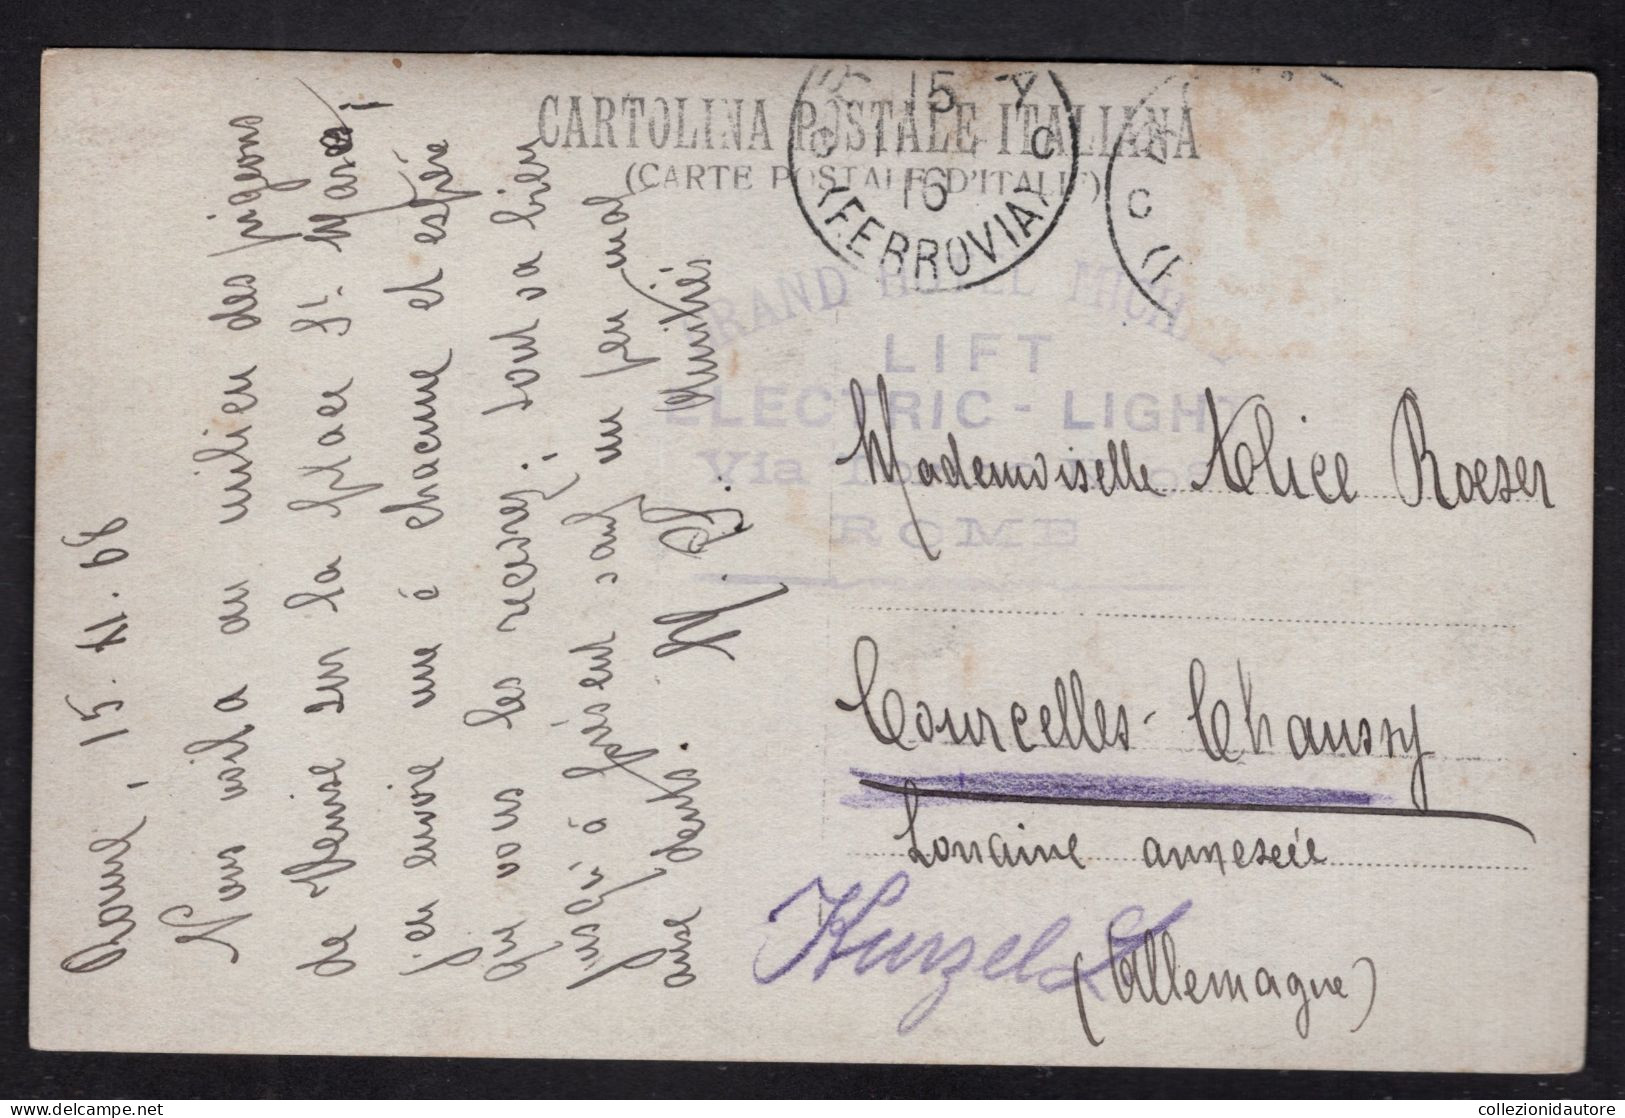 CARTOLINA POSTALE ITALIANA
(CARTE POSTALE D'ITALIE)
15
16
C C
(FERROVIA)
C
GRAND HOTEL
LIFT
ELECTRIC - LIGHT
Via
ROME
15. 11.
Nous voilà au milieu des pigeons
de Venise sur la place St. Marc
j'en envoie une à chacune et espère
que vous les recevrez; tout va bien
jusqu'à présent sauf un peu mal
aux dents. Amitiés
Mademoiselle Alice Roeser
Courcelles-Chaussy
Lorraine annexée
Kurzel
(Allemagne)
collezionidautore